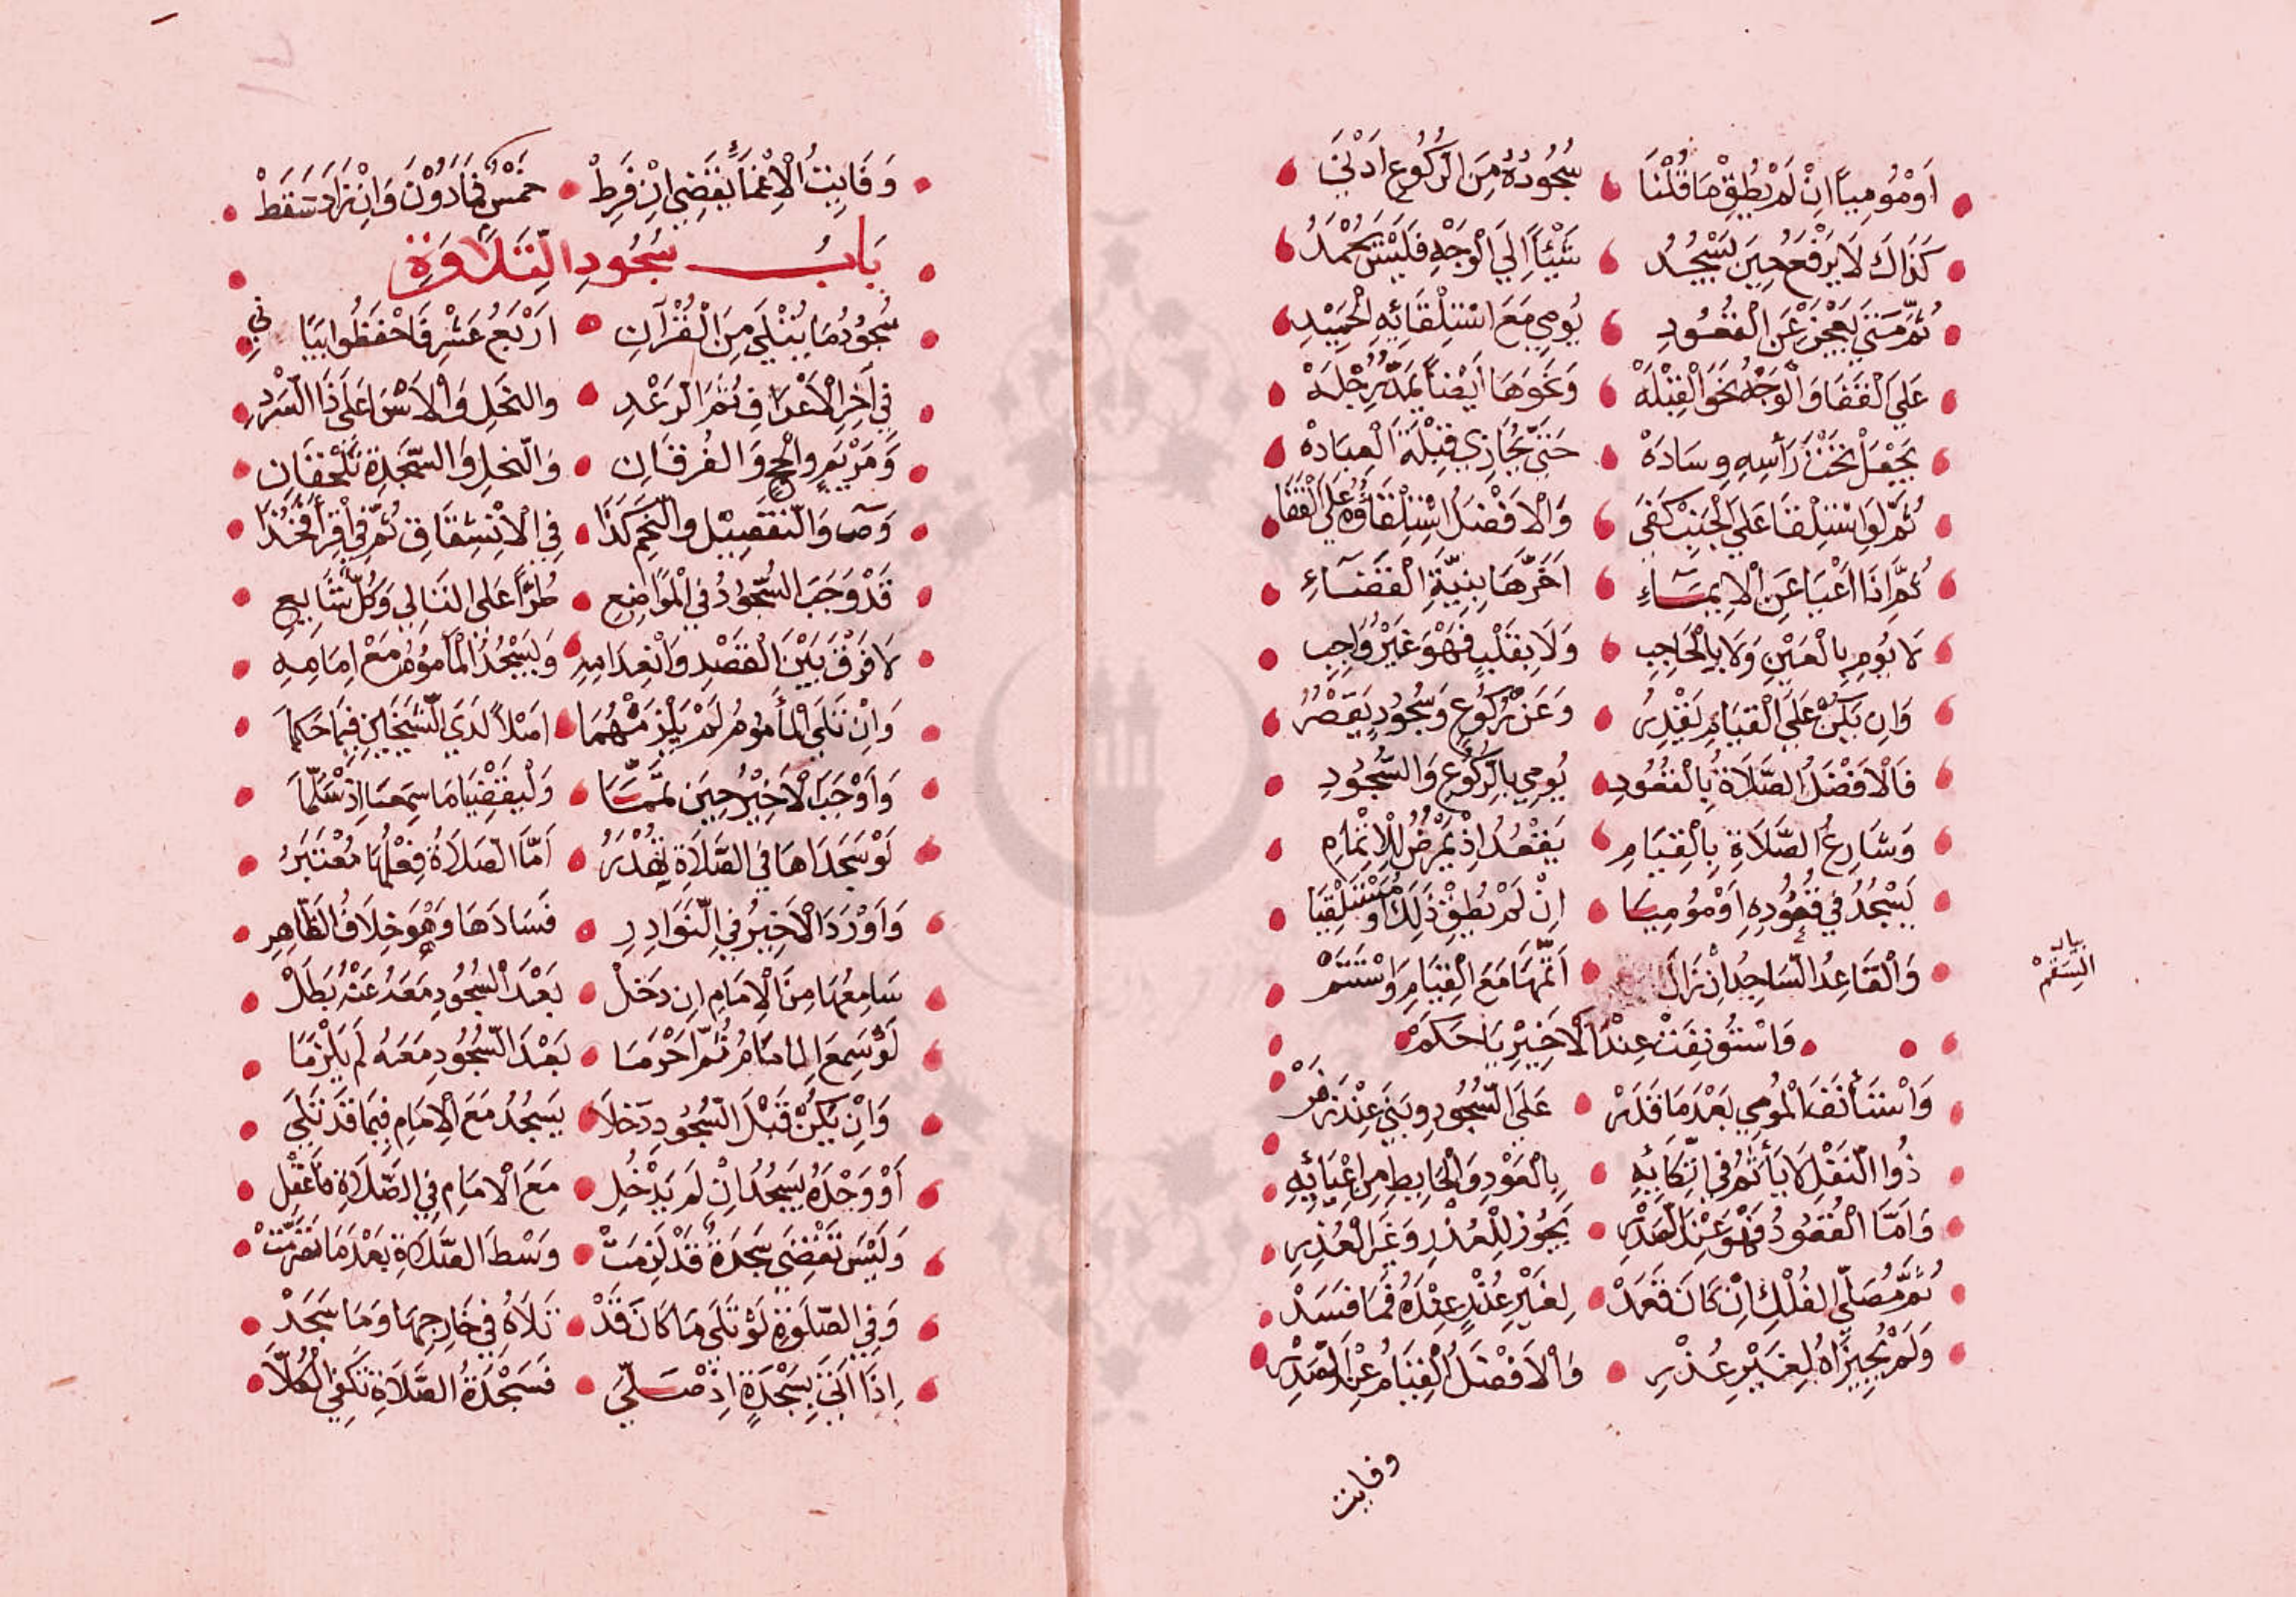 اَوْ مُومِيًا اِنْ لَمْ يُطِقْ مَا قُلْنَا سُجُودُهُ مِنَ الرُّكُوعِ اَدْنَى
كَذَاكَ لَا يَرْفَعُ حِينَ يَسْجُدُ شَيْئًا اِلَى الْوَجْهِ فَلَيْسَ يُحْمَدُ
ثُمَّ مَتَى يَعْجِزْ عَنِ الْقُعُودِ يُومِي مَعَ اسْتِلْقَائِهِ الْحَمِيدِ
عَلَى الْقَفَا وَالْوَجْهُ نَحْوَ الْقِبْلَهْ وَنَحْوَهَا اَيْضًا يَمُدُّ رِجْلَهْ
يَجْعَلْ تَحْتَ رَأْسِهِ وِسَادَهْ حَتَّى يُحَاذِي قِبْلَةَ الْعِبَادَهْ
ثُمَّ لَوِ اسْتَلْقَا عَلَى الْجَنْبِ كَفَى وَالْاَفْضَلُ اسْتِلْقَاؤُهُ عَلَى الْقَفَا
ثُمَّ اِذَا اَعْيَا عَنِ الْاِيمَاءِ اَخَّرَهَا بِنِيَّةِ الْقَضَاءِ
لَا يُومِ بِالْعَيْنِ وَلَا بِالْحَاجِبِ وَلَا بِقَلْبٍ فَهْوَ غَيْرُ وَاجِبِ
وَاِنْ يَكُنْ عَلَى الْقِيَامِ يَقْدِرُ وَعَنْ رُكُوعٍ وَسُجُودٍ يَقْصُرُ
فَالْاَفْضَلُ الصَّلَاةُ بِالْقُعُودِ يُومِي بِالرُّكُوعِ وَالسُّجُودِ
وَشَارِعُ الصَّلَاةِ بِالْقِيَامِ يَقْعُدُ اِذْ يَمْرَضُ لِلْاِتْمَامِ
يَسْجُدُ فِي قُعُودِهِ اَوْ مُومِيَا اِنْ لَمْ يُطِقْ ذَلِكَ اَوْ مُسْتَلْقِيَا
وَالْقَاعِدُ السَّاجِدُ اِنْ زَالَ اَتَمَّهَا مَعَ الْقِيَامِ وَاسْتَتَمْ
بيان السَّقَمْ
وَاسْتُؤْنِفَتْ عِنْدَ الْاَخِيرِ يَا حَكَمْ
وَاسْتَأْنَفَ الْمُومِي بَعْدَ مَا قَدَرْ عَلَى السُّجُودِ وَبَنَى عِنْدَ زُفَرْ
ذُوا النَّفْلِ لَا يَأْثَمُ فِي اتِّكَائِهِ بِالْعَوْدِ وَالْحَائِطِ مِنْ اِعْيَائِهِ
وَاَمَّا الْقُعُودُ فَهْوَ عِنْدَ الصَّدْرِ يَجُوزُ لِلْعُذْرِ وَغَيْرِ الْعُذْرِ
ثُمَّ مُصَلِّي الْفُلْكِ اِنْ كَانَ قَعَدْ لِغَيْرِ عُذْرٍ عِنْدَهُ فَمَا فَسَدْ
وَلَمْ يُجِيزَاهُ لِغَيْرِ عُذْرِ وَالْاَفْضَلُ الْقِيَامُ عِنْدَ الصَّدْرِ
وفايت
وَفَايِتُ الْاِغْمَاءِ يَقْضِي اِنْ فَرِطْ خَمْسٌ فَمَا دُوْنَ وَاِنْ زَادَ سَقَطْ
بَابُ سُجُودِ التِّلَاوَةِ
سُجُودُ مَا يُتْلَى مِنَ الْقُرْآنِ اَرْبَعُ عَشْرٍ فَاحْفَظُوا بَيَانِي
فِي آخِرِ الْاَعْرَافِ ثُمَّ الرَّعْدِ وَالنَّحْلِ وَالْاَسْرَا عَلَى ذَا السَّرْدِ
وَمَرْيَمٍ وَالْحَجِّ وَالْفُرْقَانِ وَالنَّمْلِ وَالسَّجْدَةِ تُلْحَقَانِ
وَصۤ وَالتَّفْصِيلِ وَالنَّجْمِ كَذَا فِي الْاِنْشِقَاقِ ثُمَّ فِي اقْرَأْ فَخُذَا
قَدْ وَجَبَ السُّجُودُ فِي الْمَوَاضِعِ طُرًّا عَلَى التَّالِي وَكُلِّ سَامِعِ
لَا فَرْقَ بَيْنَ الْقَصْدِ وَانْعِدَامِهِ وَيَسْجُدُ الْمَأْمُومُ مَعْ اِمَامِهِ
وَاِنْ تَلَى الْمَأْمُومُ لَمْ يَلْزَمْهُمَا اَصْلًا لَدَى الشَّيْخَيْنِ فِيمَا حَكَمَا
وَاَوْجَبَ الْاَخِيرُ حِينَ تَمَّمَا وَلْيَقْضِيَا مَا سَمِعَا اِذْ سَلَّمَا
لَوْ سَجَدَاهَا فِي الصَّلَاةِ تُهْدَرُ اَمَّا الصَّلَاةُ فِعْلُهَا مُعْتَبَرُ
وَاَوْرَدَ الْاَخِيرُ فِي النَّوَادِرِ فَسَادَهَا وَهْوَ خِلَافُ الظَّاهِرِ
سَامِعُهَا مِنَ الْاِمَامِ اِنْ دَخَلْ بَعْدَ السُّجُودِ مَعَهُ عَنْهُ بَطَلْ
لَوْ سَمِعَ الْمَامَامُ ثُمَّ اَحْرَمَا بَعْدَ السُّجُودِ مَعَهُ لَمْ يَلْزَمَا
وَاِنْ يَكُنْ قَبْلَ السُّجُودِ دَخَلَا يَسْجُدُ مَعَ الْاِمَامِ فِيمَا قَدْ تَلَى
اَوْ وَحْدَهُ يَسْجُدُ اِنْ لَمْ يَدْخُلِ مَعَ الْاِمَامِ فِي الصَّلَاةِ فَاعْقِلِ
وَلَيْسَ تُقْضَى سَجْدَةٌ قَدْ لَزِمَتْ وَسْطَ الصَّلَاةِ بَعْدَ مَا تَصَرَّمَتْ
وَفِي الصَّلَوةِ لَوْ تَلَى مَا كَانَ قَدْ تَلَاهُ فِي خَارِجِهَا وَمَا سَجَدْ
اِذَا اَتَى بِسَجْدَةٍ اِذْ صَلَّى فَسَجْدَةُ الصَّلَاةِ تَكْفِي الْكُلَّا